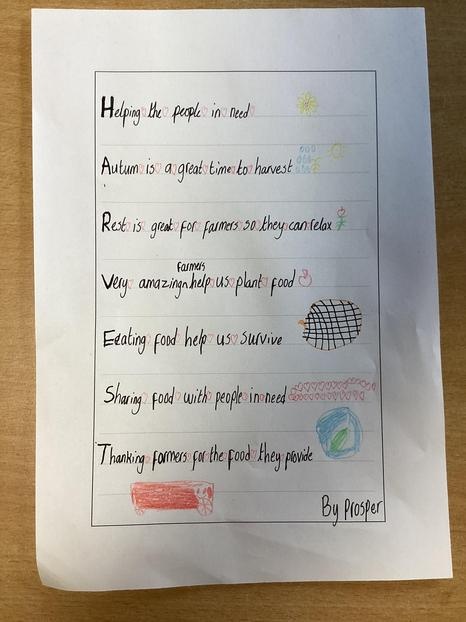 Helping the people in need
Autum is a great time to harvest
Rest is great for farmers so they can relax
Very amazing farmers help us plant food
Eating food help us survive
Sharing food with people in need
Thanking farmers for the food they provide
By Prosper